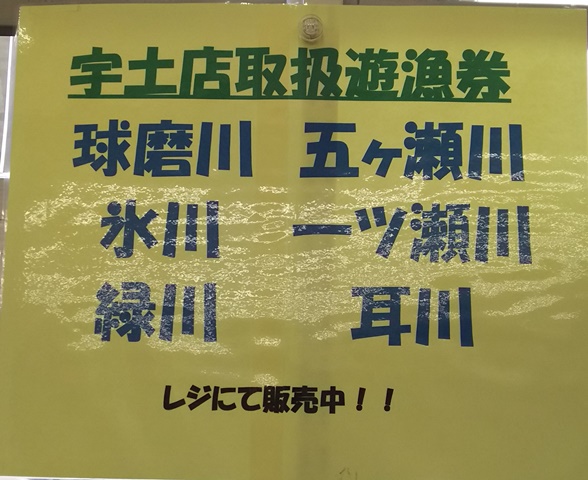 宇土店取扱遊漁券
球磨川 五ヶ瀬川
氷川 一ツ瀬川
緑川 耳川
レジにて販売中！！